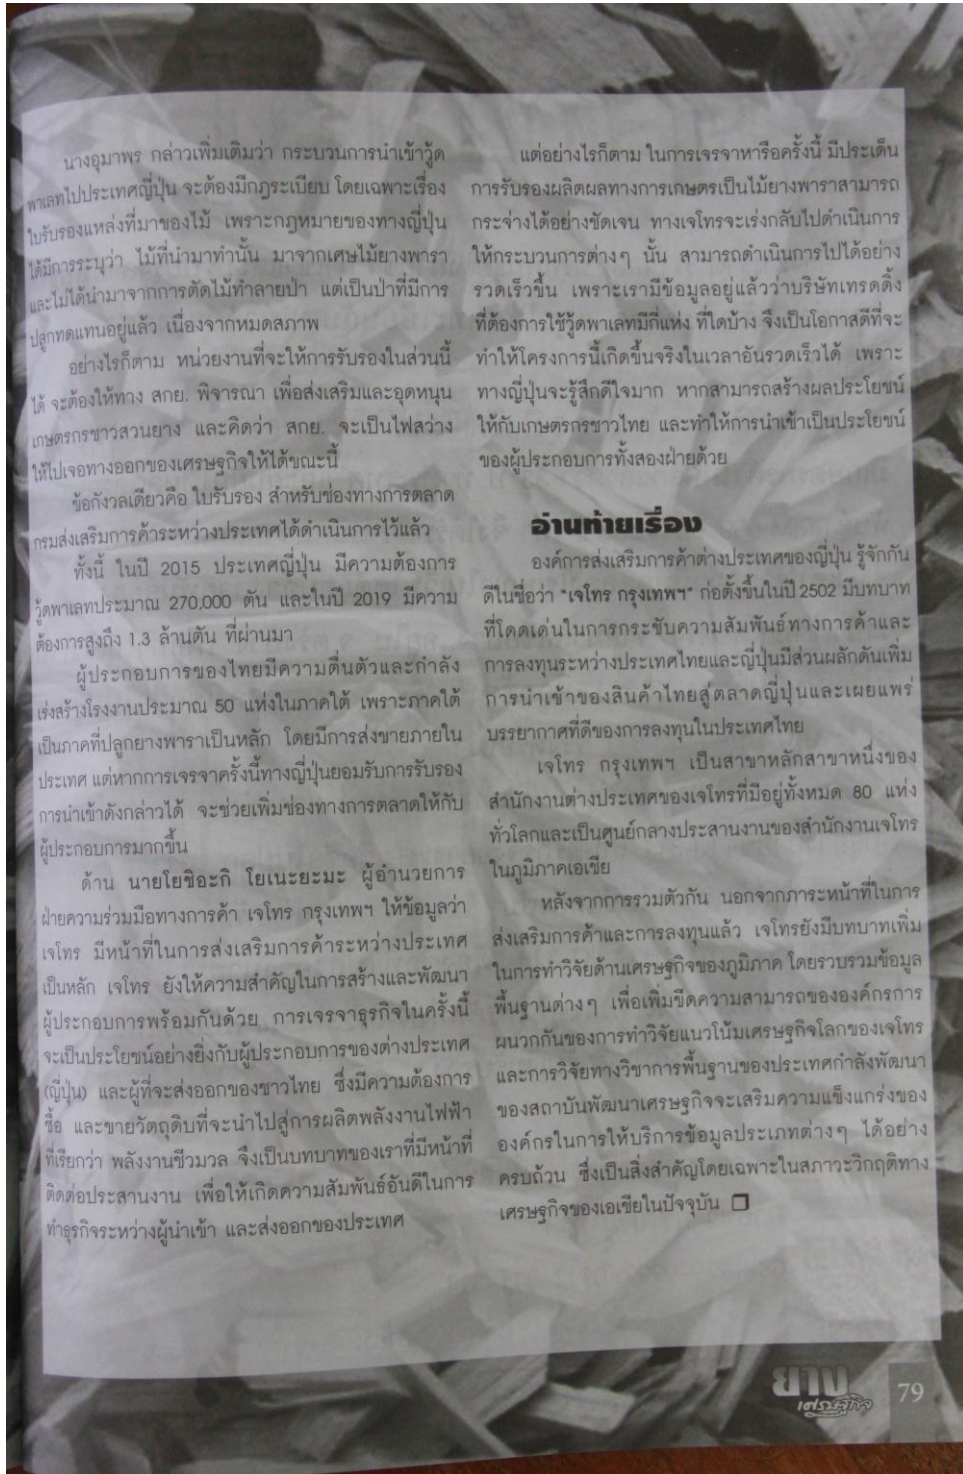 นางอุมาพร กล่าวเพิ่มเติมว่า กระบวนการนำเข้าวู้ด
พาเลทไปประเทศญี่ปุ่น จะต้องมีกฎระเบียบ โดยเฉพาะเรื่อง
ใบรับรองแหล่งที่มาของไม้ เพราะกฎหมายของทางญี่ปุ่น
ได้มีการระบุว่า ไม้ที่นำมาทำนั้น มาจากเศษไม้ยางพารา
และไม่ได้นำมาจากการตัดไม้ทำลายป่า แต่เป็นป่าที่มีการ
ปลูกทดแทนอยู่แล้ว เนื่องจากหมดสภาพ
อย่างไรก็ตาม หน่วยงานที่จะให้การรับรองในส่วนนี้
ได้ จะต้องให้ทาง สกย. พิจารณา เพื่อส่งเสริมและอุดหนุน
เกษตรกรชาวสวนยาง และคิดว่า สกย. จะเป็นไฟสว่าง
ให้ไปเจอทางออกของเศรษฐกิจให้ได้ขณะนี้
ข้อกังวลเดียวคือ ใบรับรอง สำหรับช่องทางการตลาด
กรมส่งเสริมการค้าระหว่างประเทศได้ดำเนินการไว้แล้ว
ทั้งนี้ ในปี 2015 ประเทศญี่ปุ่น มีความต้องการ
วู้ดพาเลทประมาณ 270,000 ตัน และในปี 2019 มีความ
ต้องการสูงถึง 1.3 ล้านตัน ที่ผ่านมา
ผู้ประกอบการของไทยมีความตื่นตัวและกำลัง
เร่งสร้างโรงงานประมาณ 50 แห่งในภาคใต้ เพราะภาคใต้
เป็นภาคที่ปลูกยางพาราเป็นหลัก โดยมีการส่งขายภายใน
ประเทศ แต่หากการเจรจาครั้งนี้ทางญี่ปุ่นยอมรับการรับรอง
การนำเข้าดังกล่าวได้ จะช่วยเพิ่มช่องทางการตลาดให้กับ
ผู้ประกอบการมากขึ้น
ด้าน นายโยชิอะกิ โยเนะยะมะ ผู้อำนวยการ
ฝ่ายความร่วมมือทางการค้า เจโทร กรุงเทพฯ ให้ข้อมูลว่า
เจโทร มีหน้าที่ในการส่งเสริมการค้าระหว่างประเทศ
เป็นหลัก เจโทร ยังให้ความสำคัญในการสร้างและพัฒนา
ผู้ประกอบการพร้อมกันด้วย การเจรจาธุรกิจในครั้งนี้
จะเป็นประโยชน์อย่างยิ่งกับผู้ประกอบการของต่างประเทศ
(ญี่ปุ่น) และผู้ที่จะส่งออกของชาวไทย ซึ่งมีความต้องการ
ซื้อ และขายวัตถุดิบที่จะนำไปสู่การผลิตพลังงานไฟฟ้า
ที่เรียกว่า พลังงานชีวมวล จึงเป็นบทบาทของเราที่มีหน้าที่
ติดต่อประสานงาน เพื่อให้เกิดความสัมพันธ์อันดีในการ
ทำธุรกิจระหว่างผู้นำเข้า และส่งออกของประเทศ
แต่อย่างไรก็ตาม ในการเจรจาหารือครั้งนี้ มีประเด็น
การรับรองผลิตผลทางการเกษตรเป็นไม้ยางพาราสามารถ
กระจ่างได้อย่างชัดเจน ทางเจโทรจะเร่งกลับไปดำเนินการ
ให้กระบวนการต่างๆ นั้น สามารถดำเนินการไปได้อย่าง
รวดเร็วขึ้น เพราะเรามีข้อมูลอยู่แล้วว่าบริษัทเทรดดิ้ง
ที่ต้องการใช้วู้ดพาเลทมีกี่แห่ง ที่ใดบ้าง จึงเป็นโอกาสดีที่จะ
ทำให้โครงการนี้เกิดขึ้นจริงในเวลาอันรวดเร็วได้ เพราะ
ทางญี่ปุ่นจะรู้สึกดีใจมาก หากสามารถสร้างผลประโยชน์
ให้กับเกษตรกรชาวไทย และทำให้การนำเข้าเป็นประโยชน์
ของผู้ประกอบการทั้งสองฝ่ายด้วย
อ่านท้ายเรื่อง
องค์การส่งเสริมการค้าต่างประเทศของญี่ปุ่น รู้จักกัน
ดีในชื่อว่า "เจโทร กรุงเทพฯ" ก่อตั้งขึ้นในปี 2502 มีบทบาท
ที่โดดเด่นในการกระชับความสัมพันธ์ทางการค้าและ
การลงทุนระหว่างประเทศไทยและญี่ปุ่นมีส่วนผลักดันเพิ่ม
การนำเข้าของสินค้าไทยสู่ตลาดญี่ปุ่นและเผยแพร่
บรรยากาศที่ดีของการลงทุนในประเทศไทย
เจโทร กรุงเทพฯ เป็นสาขาหลักสาขาหนึ่งของ
สำนักงานต่างประเทศของเจโทรที่มีอยู่ทั้งหมด 80 แห่ง
ทั่วโลกและเป็นศูนย์กลางประสานงานของสำนักงานเจโทร
ในภูมิภาคเอเชีย
หลังจากการรวมตัวกัน นอกจากภาระหน้าที่ในการ
ส่งเสริมการค้าและการลงทุนแล้ว เจโทรยังมีบทบาทเพิ่ม
ในการทำวิจัยด้านเศรษฐกิจของภูมิภาค โดยรวบรวมข้อมูล
พื้นฐานต่างๆ เพื่อเพิ่มขีดความสามารถขององค์กรการ
ผนวกกันของการทำวิจัยแนวโน้มเศรษฐกิจโลกของเจโทร
และการวิจัยทางวิชาการพื้นฐานของประเทศกำลังพัฒนา
ของสถาบันพัฒนาเศรษฐกิจจะเสริมความแข็งแกร่งของ
องค์กรในการให้บริการข้อมูลประเภทต่างๆ ได้อย่าง
ครบถ้วน ซึ่งเป็นสิ่งสำคัญโดยเฉพาะในสภาวะวิกฤติทาง
เศรษฐกิจของเอเชียในปัจจุบัน ❒
ยาง
เศรษฐกิจ
79